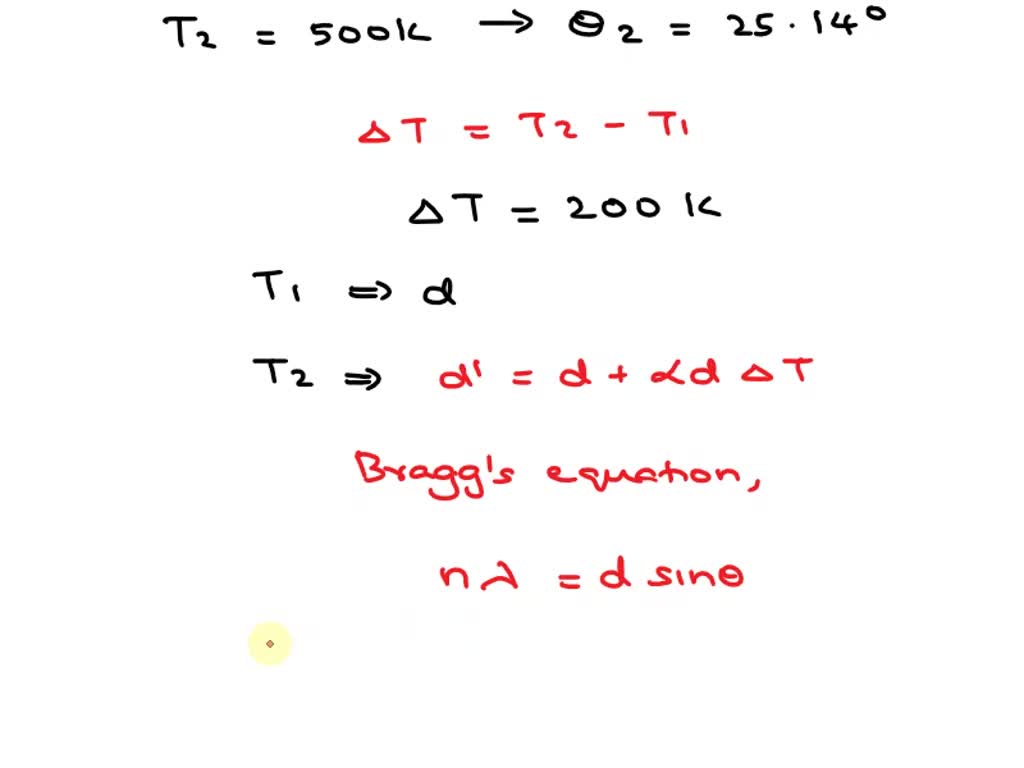 T₂ = 500K → θ₂ = 25.14°
ΔT = T₂ - T₁
ΔT = 200 K
T₁ ⇒ d
T₂ ⇒ d' = d + αd ΔT
Bragg's equation,
nλ = d sinθ